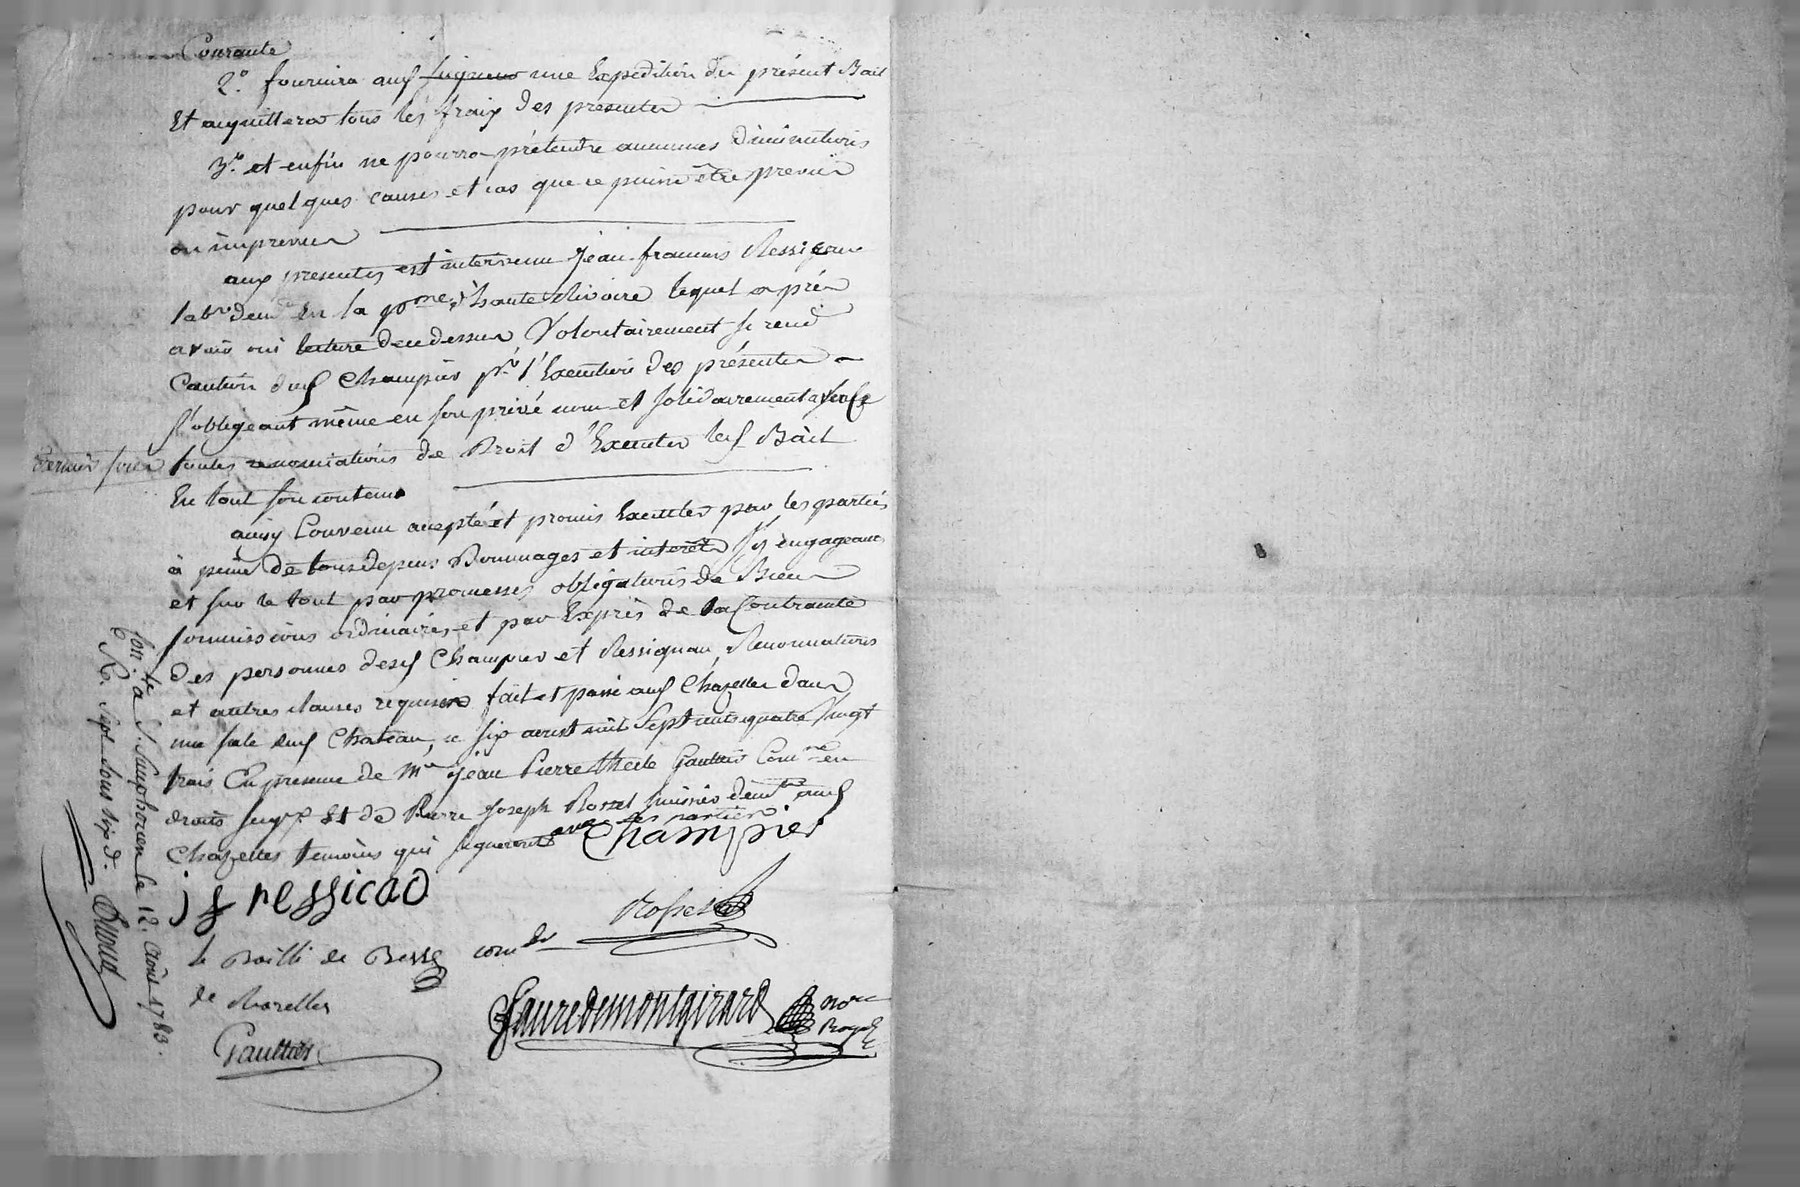 Courante
2.º fournira aud. Seigneur une Expedition du présent Bail
Et acquittera tous les fraix des presentes
3.º et enfin ne pourra prétendre aucunes diminutions
pour quelques causes et cas que ce puisse être prevus
ou imprevus
aux presentes est intervenu jean francois Ressigeau
lab.r dem.t En la p.sse d'haute Rivoire lequel après
avoir oui lecture de ce dessus Volontairement se rend
Caution dud. Champier p.r l'Execution des présentes
s'obligeant même en son privé nom et solidairement
toutes renonciations de Droit d'Executer led. Bail
En tout son contenu
ainsy Convenu accepté et promis Executer par les parties
à peine de tous depens Dommages et interêts s'y engageans
et sur le tout par promesses obligations de Biens
soumissions ordinaires et par Exprès de la Contrainte
des personnes desd. Champier et Ressigeau, Renonciations
et autres clauses requises fait et passé aud. Chazelles dans
une sale dud. Chateau, ce six aoust mil Sept cents quatre Vingt
trois En presence de M.re jean Pierre Gaultier Com.re en
droits seig.x Et de Pierre Joseph Rosset huissier dem.t aud.
Chazelles temoins qui signeront avec les parties
Champier
js ressicao
Rosset
le Bailli de Besse com.dr
de chazelles
fauredemontgirard no.re
Royal
Gaultier
Con.lé à S. Simphorien le 12. Août 1783.
R. Sept sous six d.